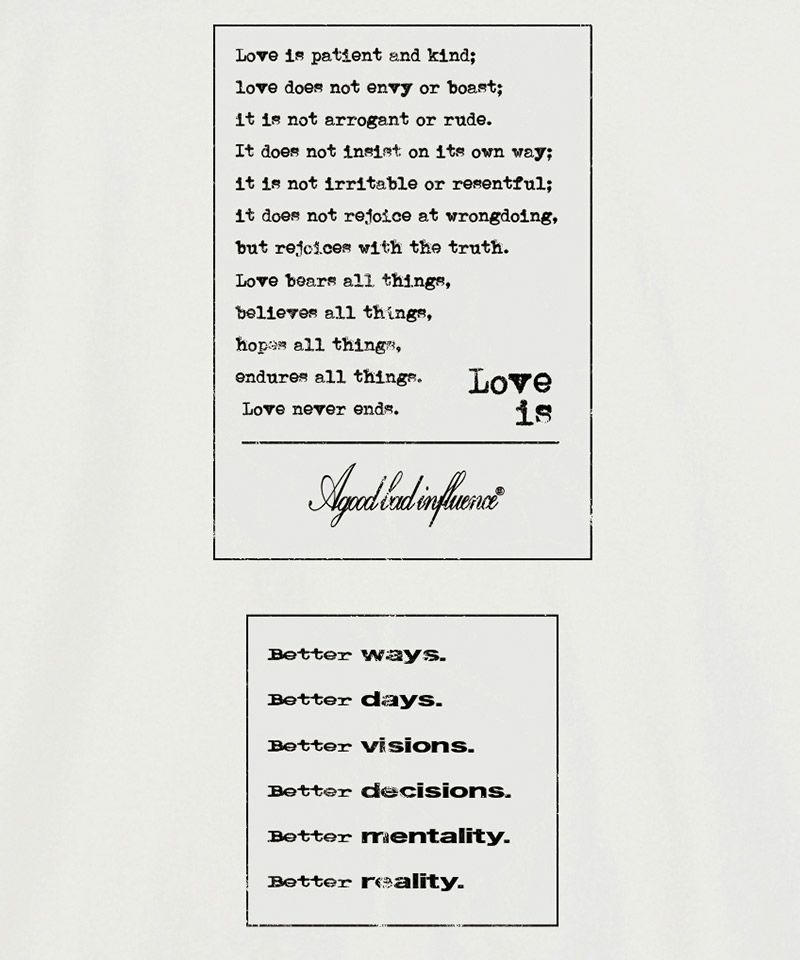 Love is patient and kind;
love does not envy or boast;
it is not arrogant or rude.
It does not insist on its own way;
it is not irritable or resentful;
it does not rejoice at wrongdoing,
but rejoices with the truth.
Love bears all things,
believes all things,
hopes all things,
endures all things.
Love never ends.
Love
is
A good bad influence®
Better ways.
Better days.
Better visions.
Better decisions.
Better mentality.
Better reality.